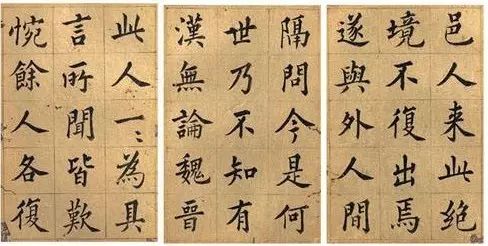 邑人来此絶
境不復出焉
遂與外人間
隔問今是何
世乃不知有
漢無論魏晉
此人一ミ為具
言所聞皆歎
惋餘人各復